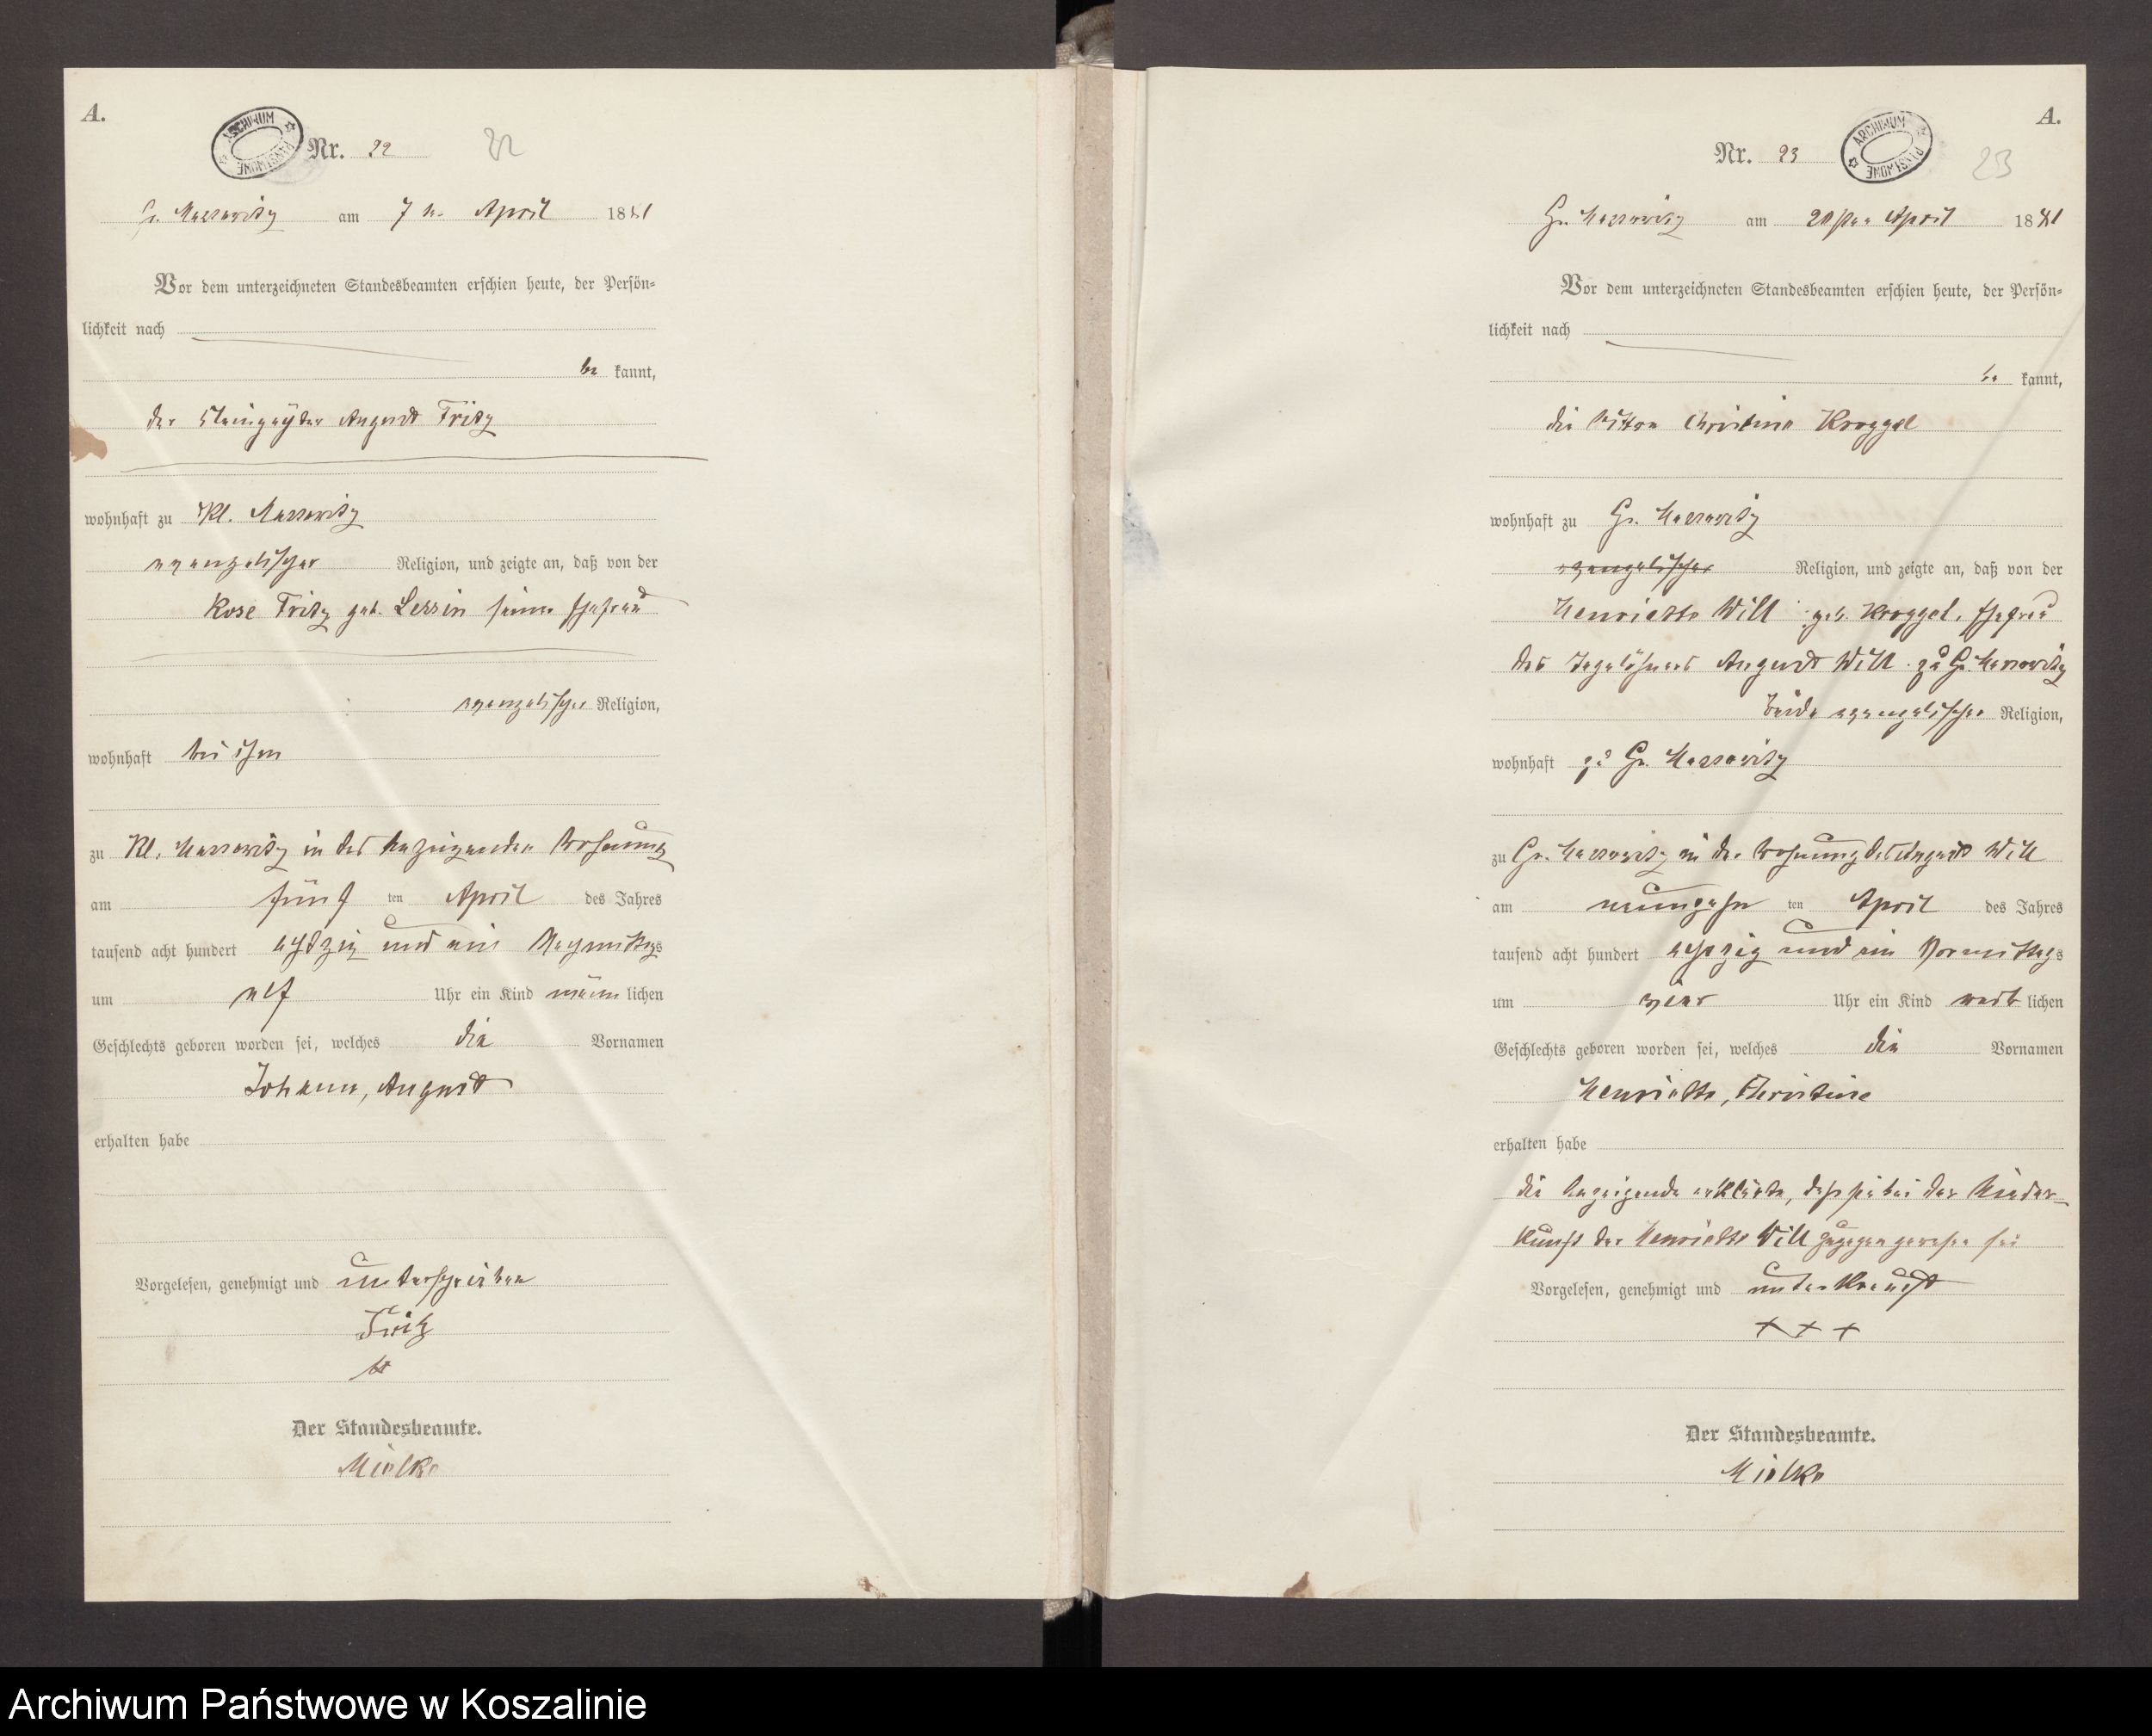 A.
ARCHIWUM PAŃSTWOWE
Nr. 22
22
Gr. Massowitz am 7 n. April 1881
Vor dem unterzeichneten Standesbeamten erschien heute, der Persön-
lichkeit nach
be kannt,
der August Fritz
wohnhaft zu Kl. Massowitz
evangelischer Religion, und zeigte an, daß von der
Rose Fritz geb. Lessin seiner Ehefrau
evangelischer Religion,
wohnhaft bei ihm
zu Kl. Massowitz in des Anzeigenden Wohnung
am fünf ten April des Jahres
tausend acht hundert achtzig und ein Nachmittags
um elf Uhr ein Kind männ lichen
Geschlechts geboren worden sei, welches die Vornamen
Johann, August
erhalten habe
Vorgelesen, genehmigt und unterschrieben
Fritz
Der Standesbeamte.
Mielke
A.
Nr. 23
ARCHIWUM PAŃSTWOWE
23
Gr. Massowitz am 20sten April 1881
Vor dem unterzeichneten Standesbeamten erschien heute, der Persön-
lichkeit nach
be kannt,
die Christine Kroggel
wohnhaft zu Gr. Massowitz
evangelischer Religion, und zeigte an, daß von der
Henriette Will geb. Kroggel, Ehefrau
des Tagelöhners August Will zu Gr. Massowitz
beide evangelischer Religion,
wohnhaft zu Gr. Massowitz
zu Gr. Massowitz in der Wohnung des August Will
am neunzehn ten April des Jahres
tausend acht hundert achtzig und ein Vormittags
um vier Uhr ein Kind weib lichen
Geschlechts geboren worden sei, welches die Vornamen
Henriette, Christine
erhalten habe
die Anzeigende erklärte, daß sie bei der Nieder-
kunft der Henriette Will zugegen gewesen sei
Vorgelesen, genehmigt und unterkreuzt
+ + +
Der Standesbeamte.
Mielke
Archiwum Państwowe w Koszalinie